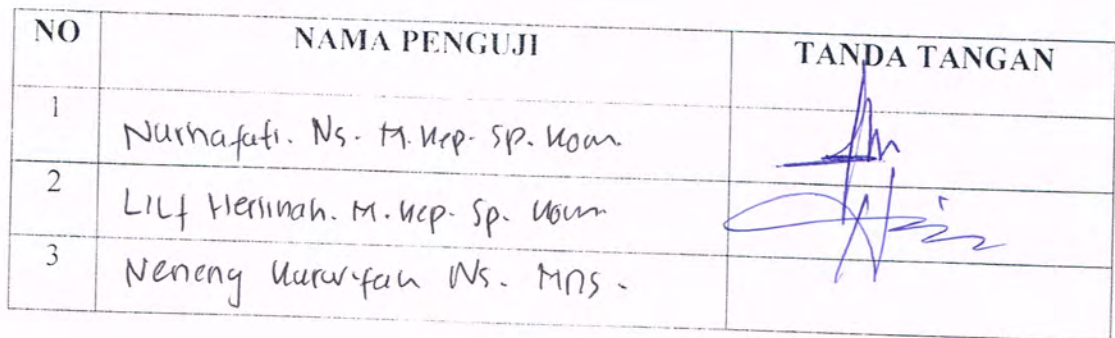 NO NAMA PENGUJI TANDA TANGAN
1 Nurhafati. Ns. M. Kep. Sp. Kom.
2 Herlinah. M. Kep. Sp. Kom
3 Neneng Ns. MNS.